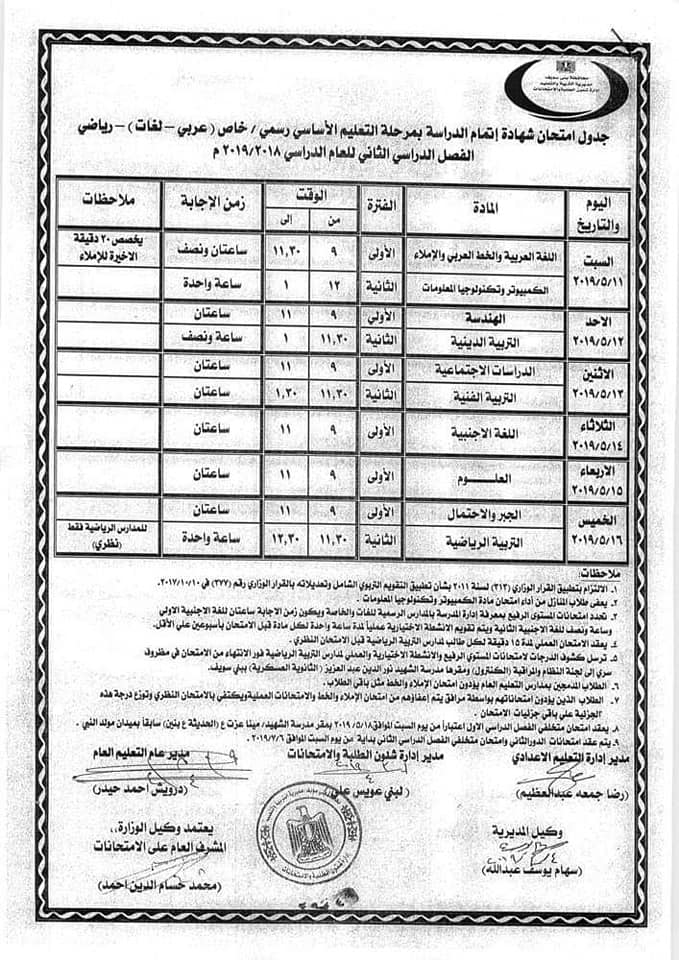 محافظة بنى سويف
مديرية التربية والتعليم
إدارة شئون الطلبة والامتحانات
جدول امتحان شهادة إتمام الدراسة بمرحلة التعليم الأساسي رسمي / خاص ( عربي - لغات ) - رياضي
الفصل الدراسي الثاني للعام الدراسي ٢٠١٩/٢٠١٨ م
اليوم والتاريخ المادة الفترة الوقت من إلى زمن الإجابة ملاحظات
السبت ٢٠١٩/٥/١١ اللغة العربية والخط العربي والإملاء الأولى ٩ ١١,٣٠ ساعتان ونصف يخصص ٢٠ دقيقة الاخيرة للإملاء
الكمبيوتر وتكنولوجيا المعلومات الثانية ١٢ ١ ساعة واحدة
الاحد ٢٠١٩/٥/١٢ الهندسة الأولي ٩ ١١ ساعتان
التربية الدينية الثانية ١١,٣٠ ١ ساعة ونصف
الاثنين ٢٠١٩/٥/١٣ الدراسات الاجتماعية الأولى ٩ ١١ ساعتان
التربية الفنية الثانية ١١,٣٠ ١,٣٠ ساعتان
الثلاثاء ٢٠١٩/٥/١٤ اللغة الاجنبية الأولى ٩ ١١ ساعتان
الاربعاء ٢٠١٩/٥/١٥ العلـــــوم الأولى ٩ ١١ ساعتان
الخميس ٢٠١٩/٥/١٦ الجبر والاحتمال الأولى ٩ ١١ ساعتان
التربية الرياضية الثانية ١١,٣٠ ١٢,٣٠ ساعة واحدة للمدارس الرياضية فقط (نظري)
ملاحظات:
١. الالتزام بتطبيق القرار الوزاري (٣١٣) لسنة ٢٠١١ بشأن تطبيق التقويم التربوي الشامل وتعديلاته بالقرار الوزاري رقم (٣٧٧) في ٢٠١٧/١٠/١٠.
٢. يعفى طلاب المنازل من أداء امتحان مادة الكمبيوتر وتكنولوجيا المعلومات .
٣. تحدد امتحانات المستوى الرفيع بمعرفة إدارة المدرسة بالمدارس الرسمية للغات والخاصة ويكون زمن الاجابة ساعتان للغة الاجنبية الاولي
وساعة ونصف للغة الاجنبية الثانية ويتم تقويم الانشطة الاختيارية عملياً لمدة ساعة واحدة لكل مادة قبل الامتحان بأسبوعين علي الأقل.
٤. يعقد الامتحان العملي لمدة ١٥ دقيقة لكل طالب لمدارس التربية الرياضية قبل الامتحان النظري .
٥. ترسل كشوف الدرجات لامتحانات المستوي الرفيع والانشطة الاختيارية والعملي لمدارس التربية الرياضية فور الانتهاء من الامتحان في مظروف
سري إلى لجنة النظام والمراقبة (الكنترول) ومقرها مدرسة الشهيد نور الدين عبد العزيز ( الثانوية العسكرية) ببني سويف.
٦. الطلاب المدمجين بمدارس التعليم العام يؤدون امتحان الإملاء والخط مثل باقي الطلاب .
٧. الطلاب الذين يؤدون امتحاناتهم بواسطة مرافق يتم إعفاؤهم من امتحان الإملاء والخط والامتحانات العملية ويكتفي بالامتحان النظري وتوزع درجة هذه
الجزئية علي باقي جزئيات الامتحان .
٨. يعقد امتحان متخلفي الفصل الدراسي الاول اعتباراً من يوم السبت الموافق ٢٠١٩/٥/١٨ بمقر مدرسة الشهيد/ مينا عزت ع (الحديثة ع بنين) سابقاً بميدان مولد النبي .
٩. يتم عقد امتحانات الدور الثاني وامتحان متخلفي الفصل الدراسي الثاني بداية من يوم السبت الموافق ٢٠١٩/٧/٦ .
مدير إدارة التعليم الاعدادي مدير إدارة شئون الطلبة والامتحانات مدير عام التعليم العام
(رضا جمعه عبدالعظيم) (لبني عويس علي) (درويش احمد حيدر)
وكيل المديرية يعتمد وكيل الوزارة،،
المشرف العام على الامتحانات
(سهام يوسف عبدالله) (محمد حسام الدين احمد)